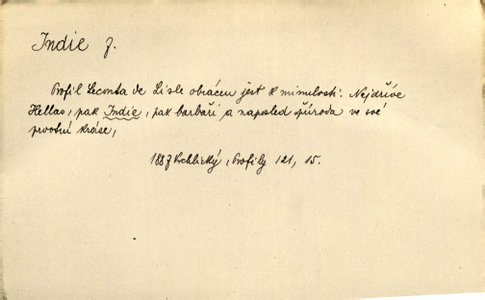 Indie f.
Profil Leconta de Lisle obrácen jest k minulosti: Nejdříve
Hellas, pak Indie, pak barbaři a naposled příroda ve své
prvotní kráse,
1887 Vrchlický, Profily 121, 15.